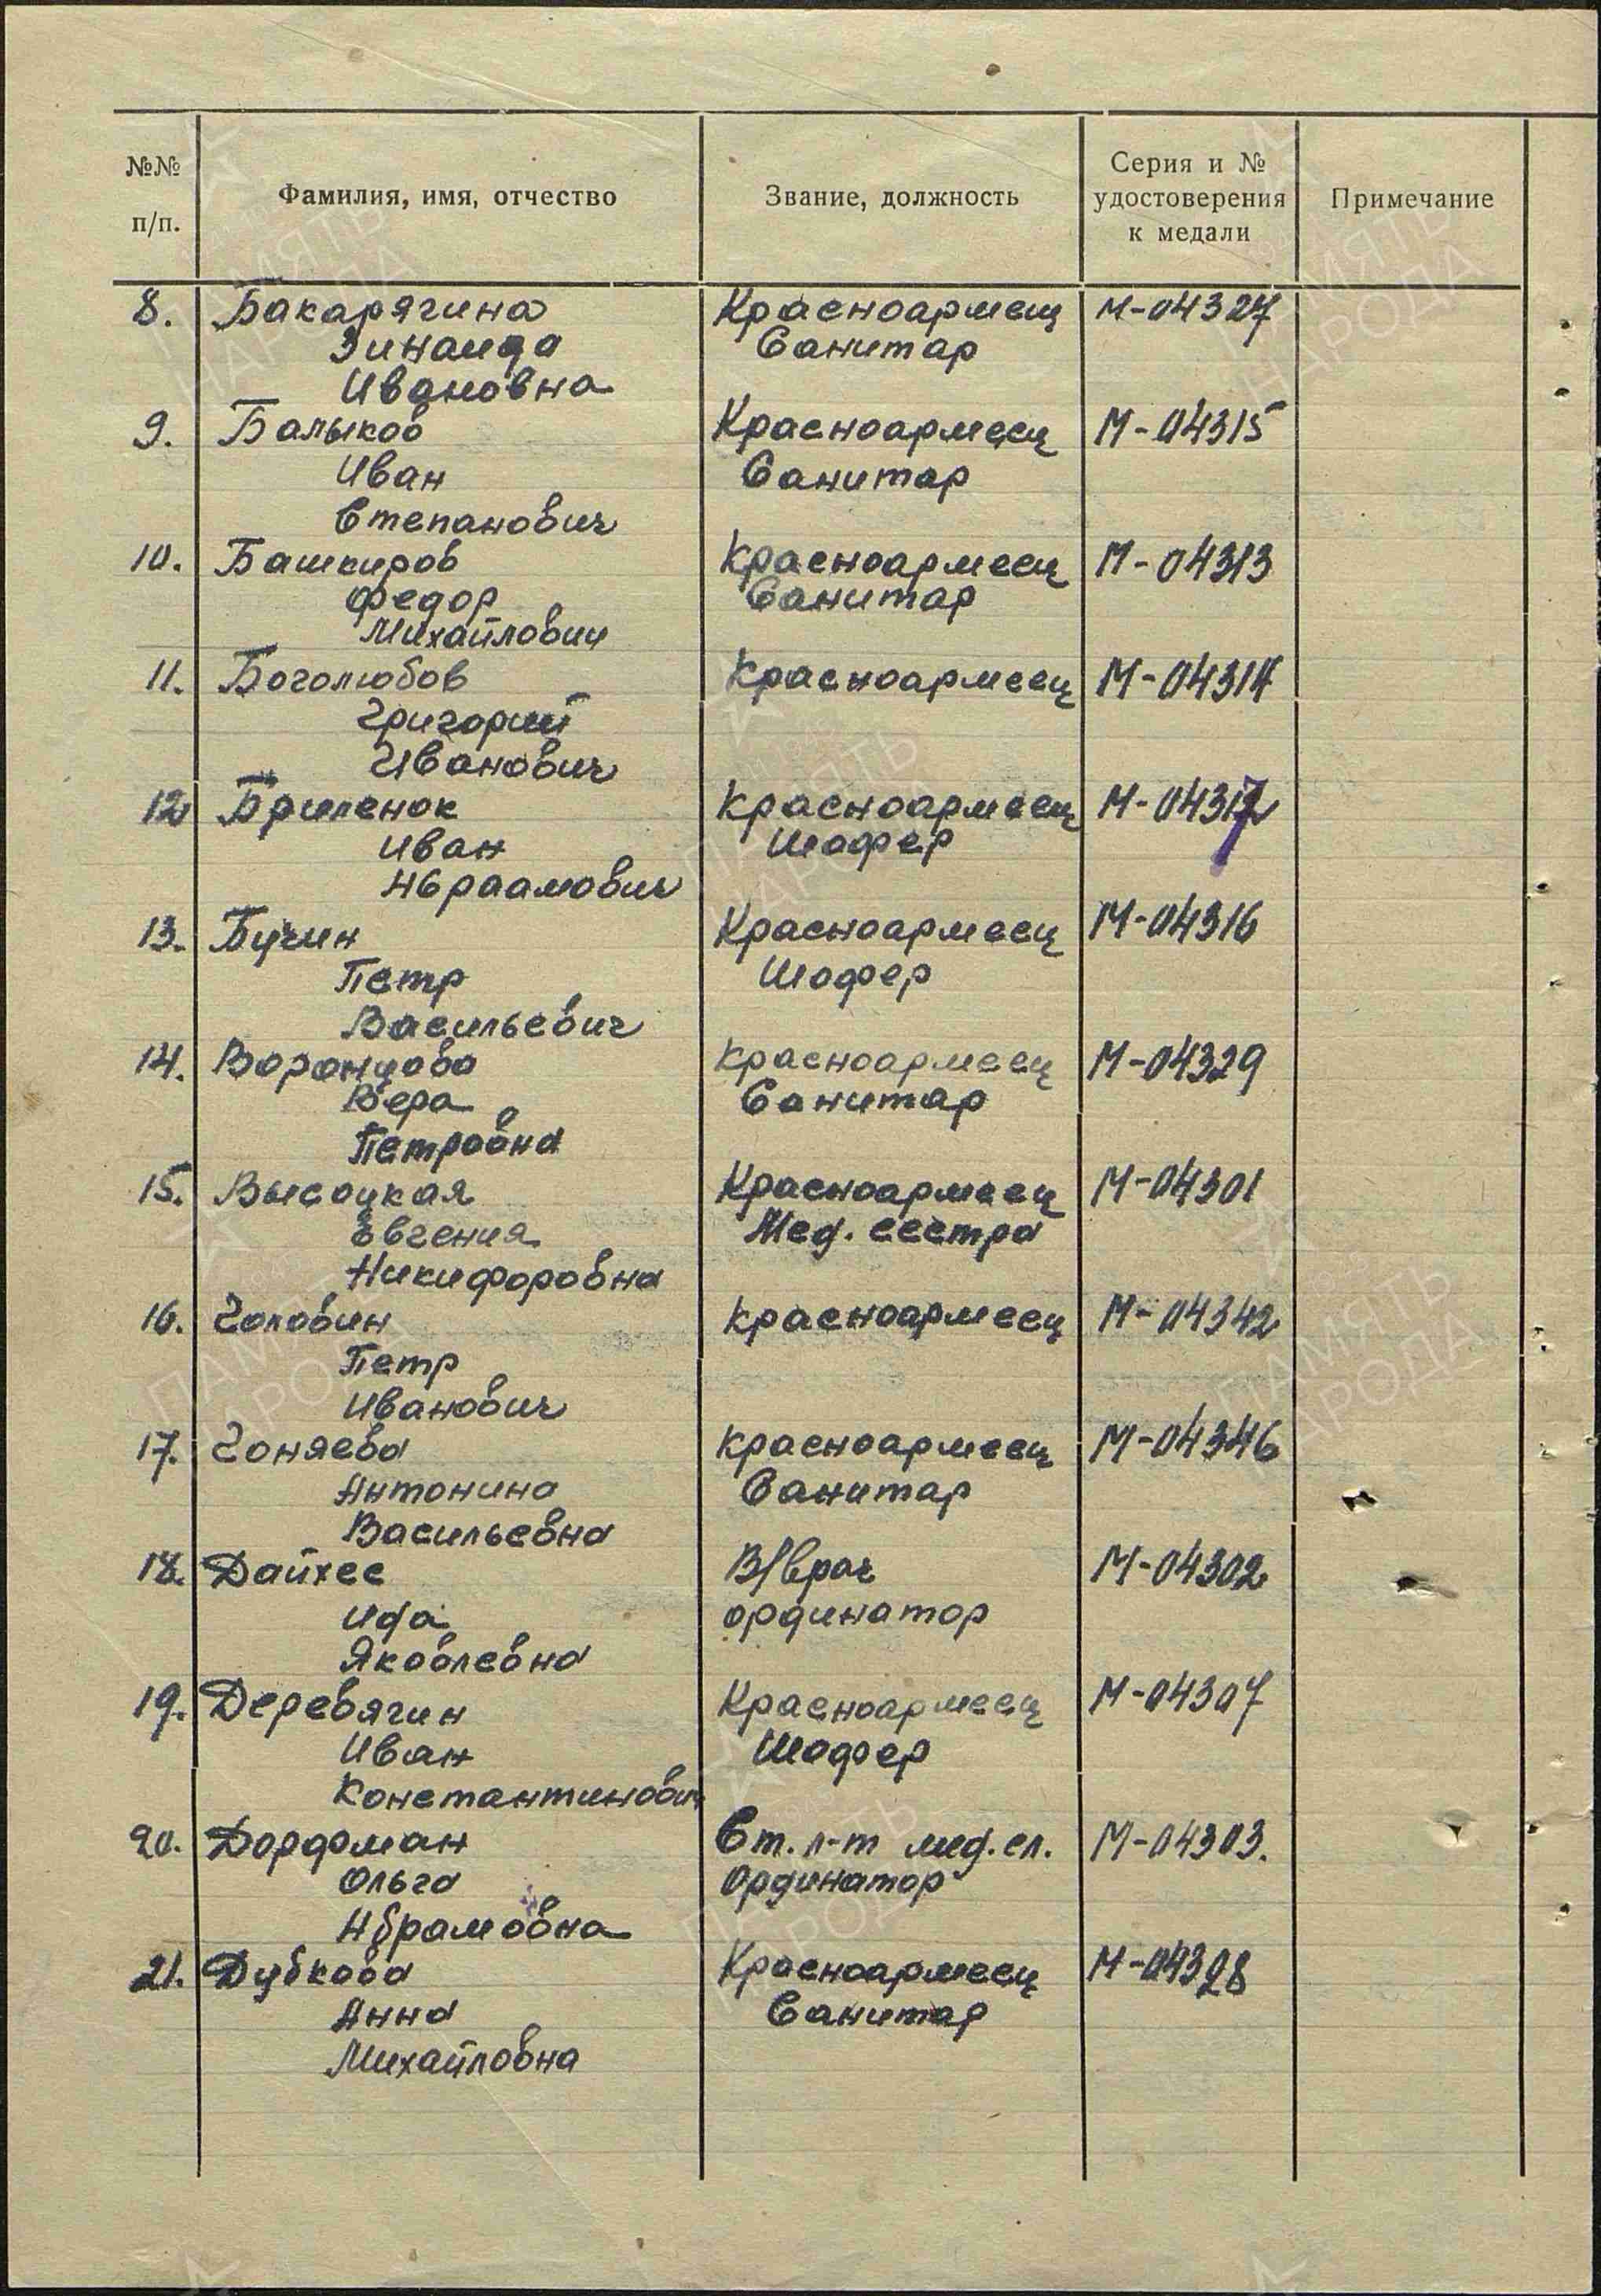 №№ п/п. Фамилия, имя, отчество Звание, должность Серия и № удостоверения к медали Примечание
8. Бакарягина Красноармеец М-04327
Зинаида Санитар
Ивановна
9. Балыков Красноармеец М-04315
Иван Санитар
Степанович
10. Башкиров Красноармеец М-04313
Федор Санитар
Михайлович
11. Боголюбов Красноармеец М-04314
Григорий
Иванович
12 Бриленок Красноармеец
Иван Шофер
Абраамович
13. Бучин Красноармеец М-04316
Петр Шофер
Васильевич
14. Воронцова Красноармеец М-04329
Вера Санитар
Петровна
15. Высоцкая Красноармеец М-04301
Евгения Мед. сестра
Никифоровна
16. Головин Красноармеец М-04342
Петр
Иванович
17. Гоняева Красноармеец М-04346
Антонина Санитар
Васильевна
18. Дайхес В/врач М-04302
Ида ординатор
Яковлевна
19. Деревягин Красноармеец М-04307
Иван Шофер
Константинович
20. Дорфман Ст. л-т мед. сл. М-04303.
Ольга Ординатор
Абрамовна
21. Дубкова Красноармеец М-04328
Анна Санитар
Михайловна
ПАМЯТЬ
НАРОДА